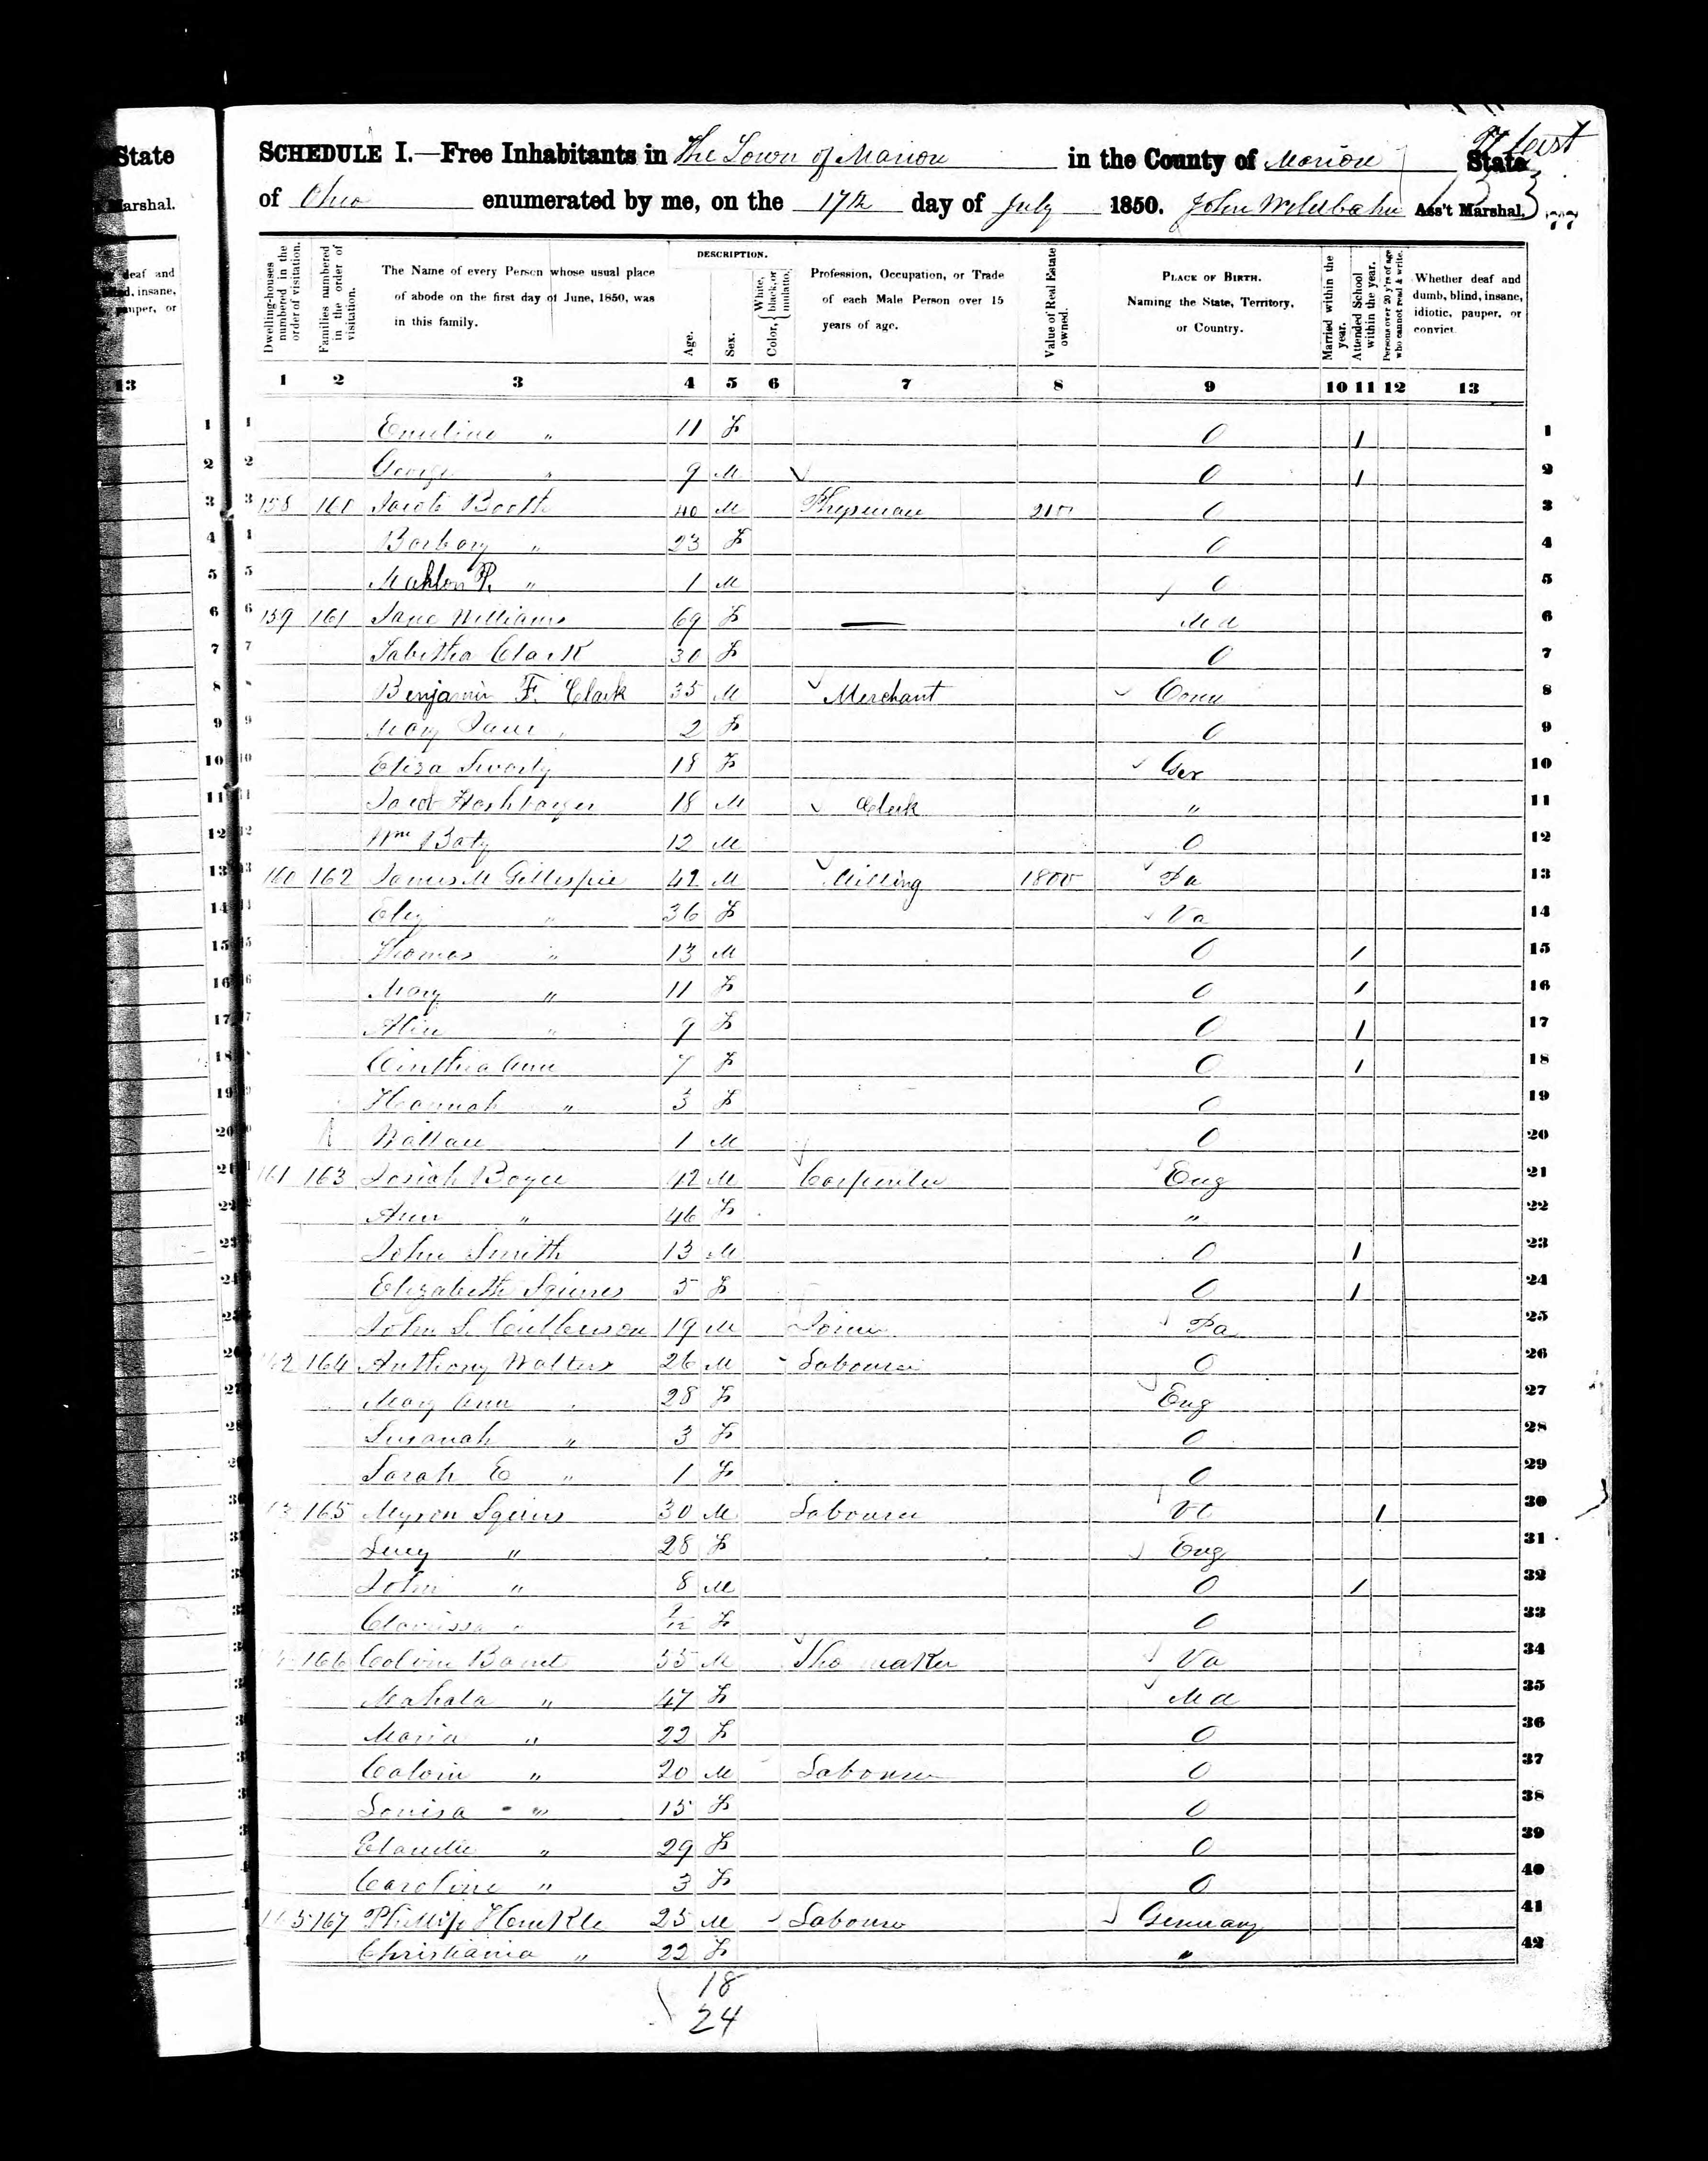 State
Marshal.
deaf and
insane,
pauper, or
13
SCHEDULE I.—Free Inhabitants in The Town of Marion in the County of Marion State
of Ohio enumerated by me, on the 17th day of July 1850. John Ass't Marshal.
DESCRIPTION.
Dwelling-houses numbered in the order of visitation.
Families numbered in the order of visitation.
The Name of every Person whose usual place of abode on the first day of June, 1850, was in this family.
Age.
Sex.
Color, White, black, or mulatto.
Profession, Occupation, or Trade of each Male Person over 15 years of age.
Value of Real Estate owned.
PLACE OF BIRTH. Naming the State, Territory, or Country.
Married within the year.
Attended School within the year.
Persons over 20 y'rs of age who cannot read & write.
Whether deaf and dumb, blind, insane, idiotic, pauper, or convict.
1 2 3 4 5 6 7 8 9 10 11 12 13
1 Emeline " 11 F O 1 1
2 George " 9 M O 1 2
3 158 160 Jacob Booth 40 M O 3
4 Barbary " 23 F O 4
5 Mahlon R. " 1 M O 5
6 159 161 Jane Williams 69 F — Md 6
7 Tabitha Clark 30 F O 7
8 Benjamin F. Clark 35 M Merchant Conn 8
9 Mary Jane " 2 F O 9
10 Eliza 18 F Ger 10
11 Jacob 18 M Clerk " 11
12 Wm Baty 12 M O 12
13 160 162 James M Gillespie 42 M Milling 1800 Pa 13
14 Eliz " 36 F Va 14
15 Thomas " 13 M O 1 15
16 Mary " 11 F O 1 16
17 " 9 F O 1 17
18 Cinthia Ann 7 F O 1 18
19 Hannah " 3 F O 19
20 1 M O 20
21 161 163 Josiah Boyer 42 M Carpenter Eng 21
22 Ann " 46 F " 22
23 John Smith 13 M O 1 23
24 Elizabeth Squires 5 F O 1 24
25 John S. Culberson 19 M Joiner Pa 25
26 162 164 Anthony Walters 26 M Labourer O 26
27 Mary Ann " 28 F Eng 27
28 Susanah " 3 F O 28
29 Sarah E " 1 F O 29
30 165 Myron Squires 30 M Labourer Vt 1 30
31 Lucy " 28 F Eng 31
32 John " 8 M O 1 32
33 Clarissa " F O 33
34 166 Calvin 55 M Shomaker Va 34
35 Mahala " 47 F Md 35
36 Maria " 22 F O 36
37 Calvin " 20 M Labourer O 37
38 Louisa " 15 F O 38
39 " 29 F O 39
40 Caroline " 3 F O 40
41 167 Phillip Henkle 25 M Labourer Germany 41
42 Christiania " 22 F " 42
18
24